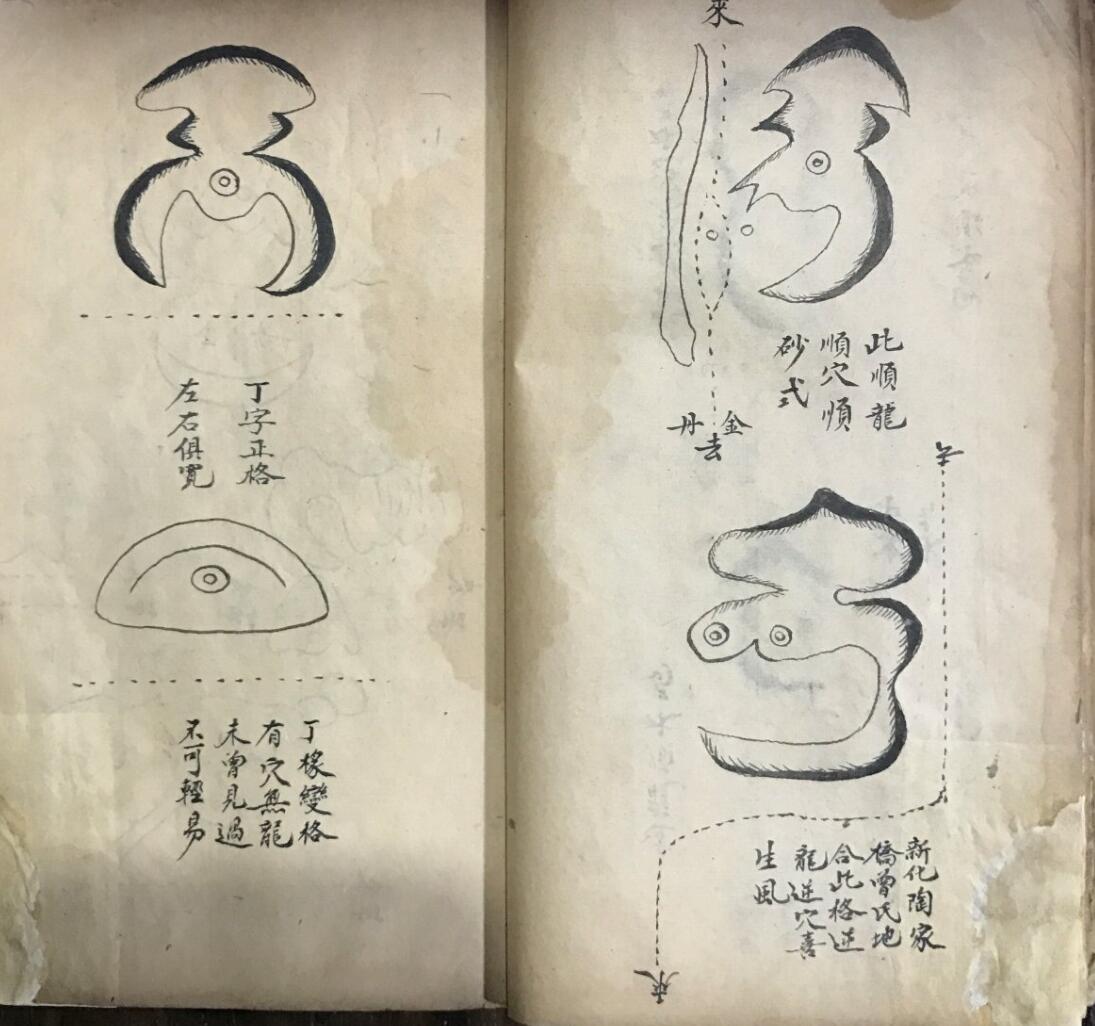 來
此順龍
順穴順
砂式
金
丹
去
去
新化陶家
橋曾氏地
合此格逆
龍逆穴喜
生風
來
丁字正格
左右俱寬
丁椽變格
有穴無龍
未曾見過
不可輕易